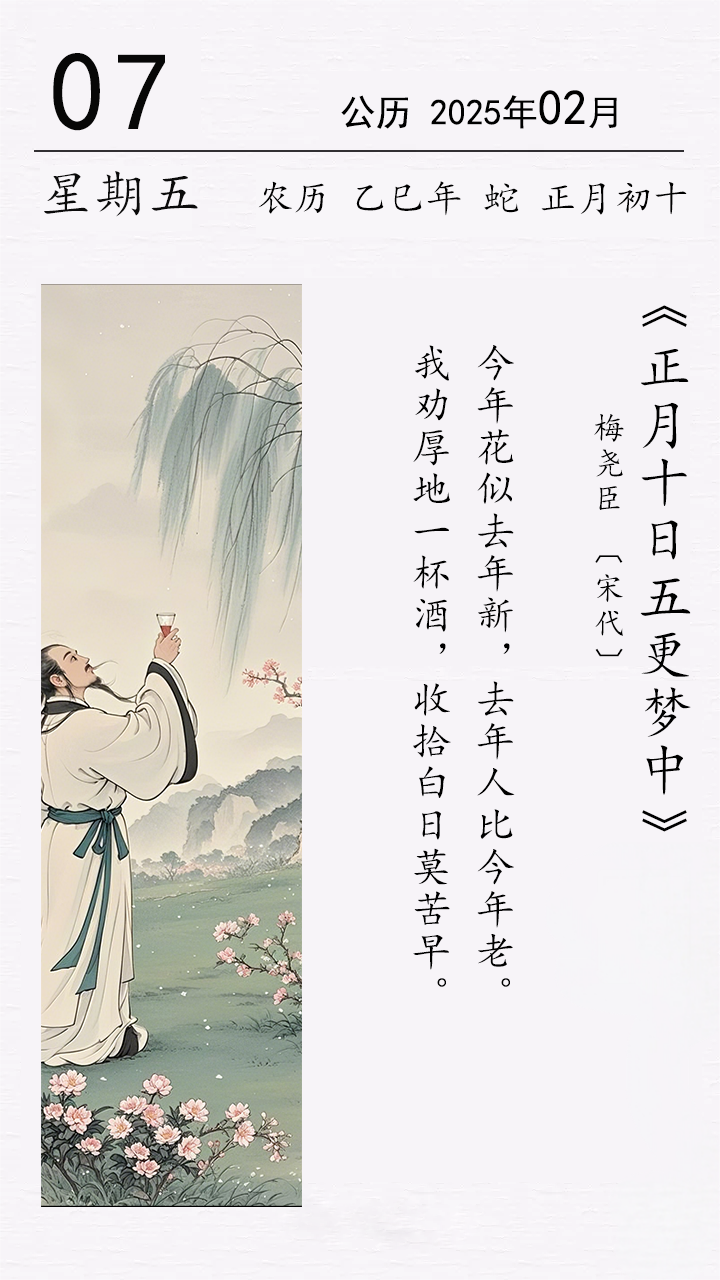 07
公历 2025年02月
星期五 农历 乙巳年 蛇 正月初十
《正月十日五更梦中》
梅尧臣 〔宋代〕
今年花似去年新，去年人比今年老。
我劝厚地一杯酒，收拾白日莫苦早。